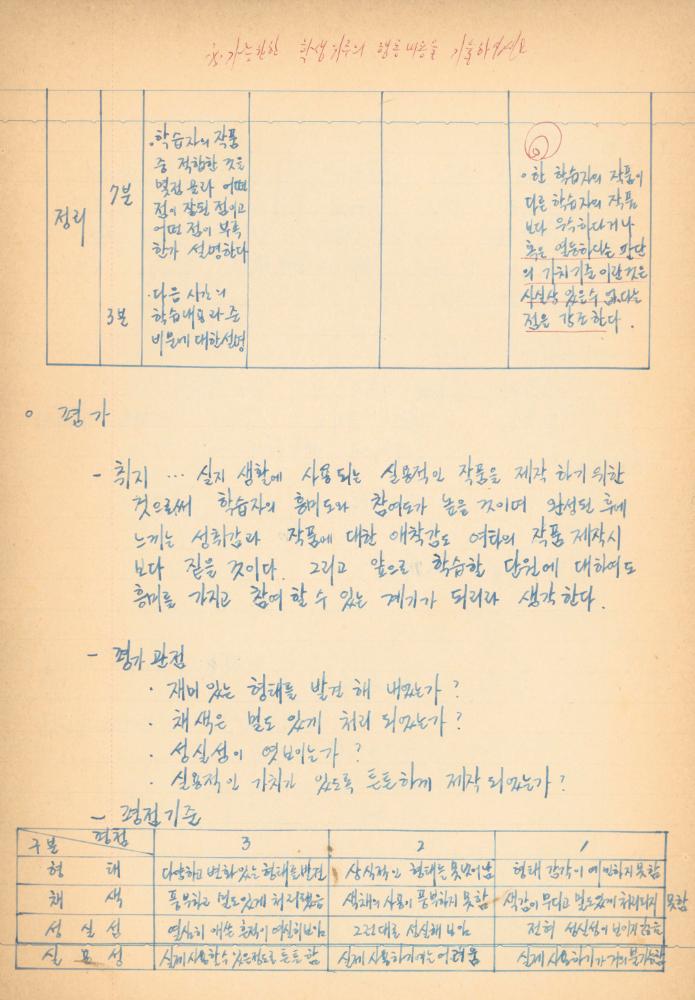 ※. 가능한한 학생 위주의 행동내용을 기술하십시요
정리
7분
.학습자의 작품
중 적합한 것을
몇점 골라 어떠
점이 잘된 점이고
어떤 점이 부족
한가 설명한다
3분
.다음 시간의
학습내용과 준
비물에 대한 설명
◦한 학습자의 작품이
다른 학습자의 작품
보다 우수하다거나
혹은 열등하다는 판단
의 가치기준이란것은
사실상 있을수 없다는
점을 강조한다.
◦ 평가
- 취지 … 실지 생활에 사용되는 실용적인 작품을 제작 하기 위한
것으로써 학습자의 흥미도와 참여도가 높을 것이며 완성된 후에
느끼는 성취감과 작품에 대한 애착감도 여타의 작품 제작시
보다 짙을 것이다. 그리고 앞으로 학습할 단원에 대하여도
흥미를 가지고 참여 할 수 있는 계기가 되리라 생각한다.
- 평가 관점
· 재미있는 형태를 발견 해 내었는가?
· 채색은 밀도 있게 처리 되었는가?
· 성실성이 엿보이는가?
· 실용적인 가치가 있도록 튼튼하게 제작 되었는가?
- 평점기준
구분 평점 3 2 1
형 태 다양하고 변화있는 형태를 발견 상식적인 형태를 못벗어남 형태 감각이 예민하지 못함
채 색 풍부하고 밀도있게 처리했음 색채의 사용이 풍부하지 못함 색감이 무디고 밀도있게 처리되지 못함
성 실 성 열심히 애쓴 흔적이 역실히 보임 그런대로 성실해 보임 전혀 성실성이 보이지 않음
실 용 성 실제 사용할수 있을정도로 튼튼함 실제 사용하기에는 어려움 실제 사용하기가 거의 불가능함